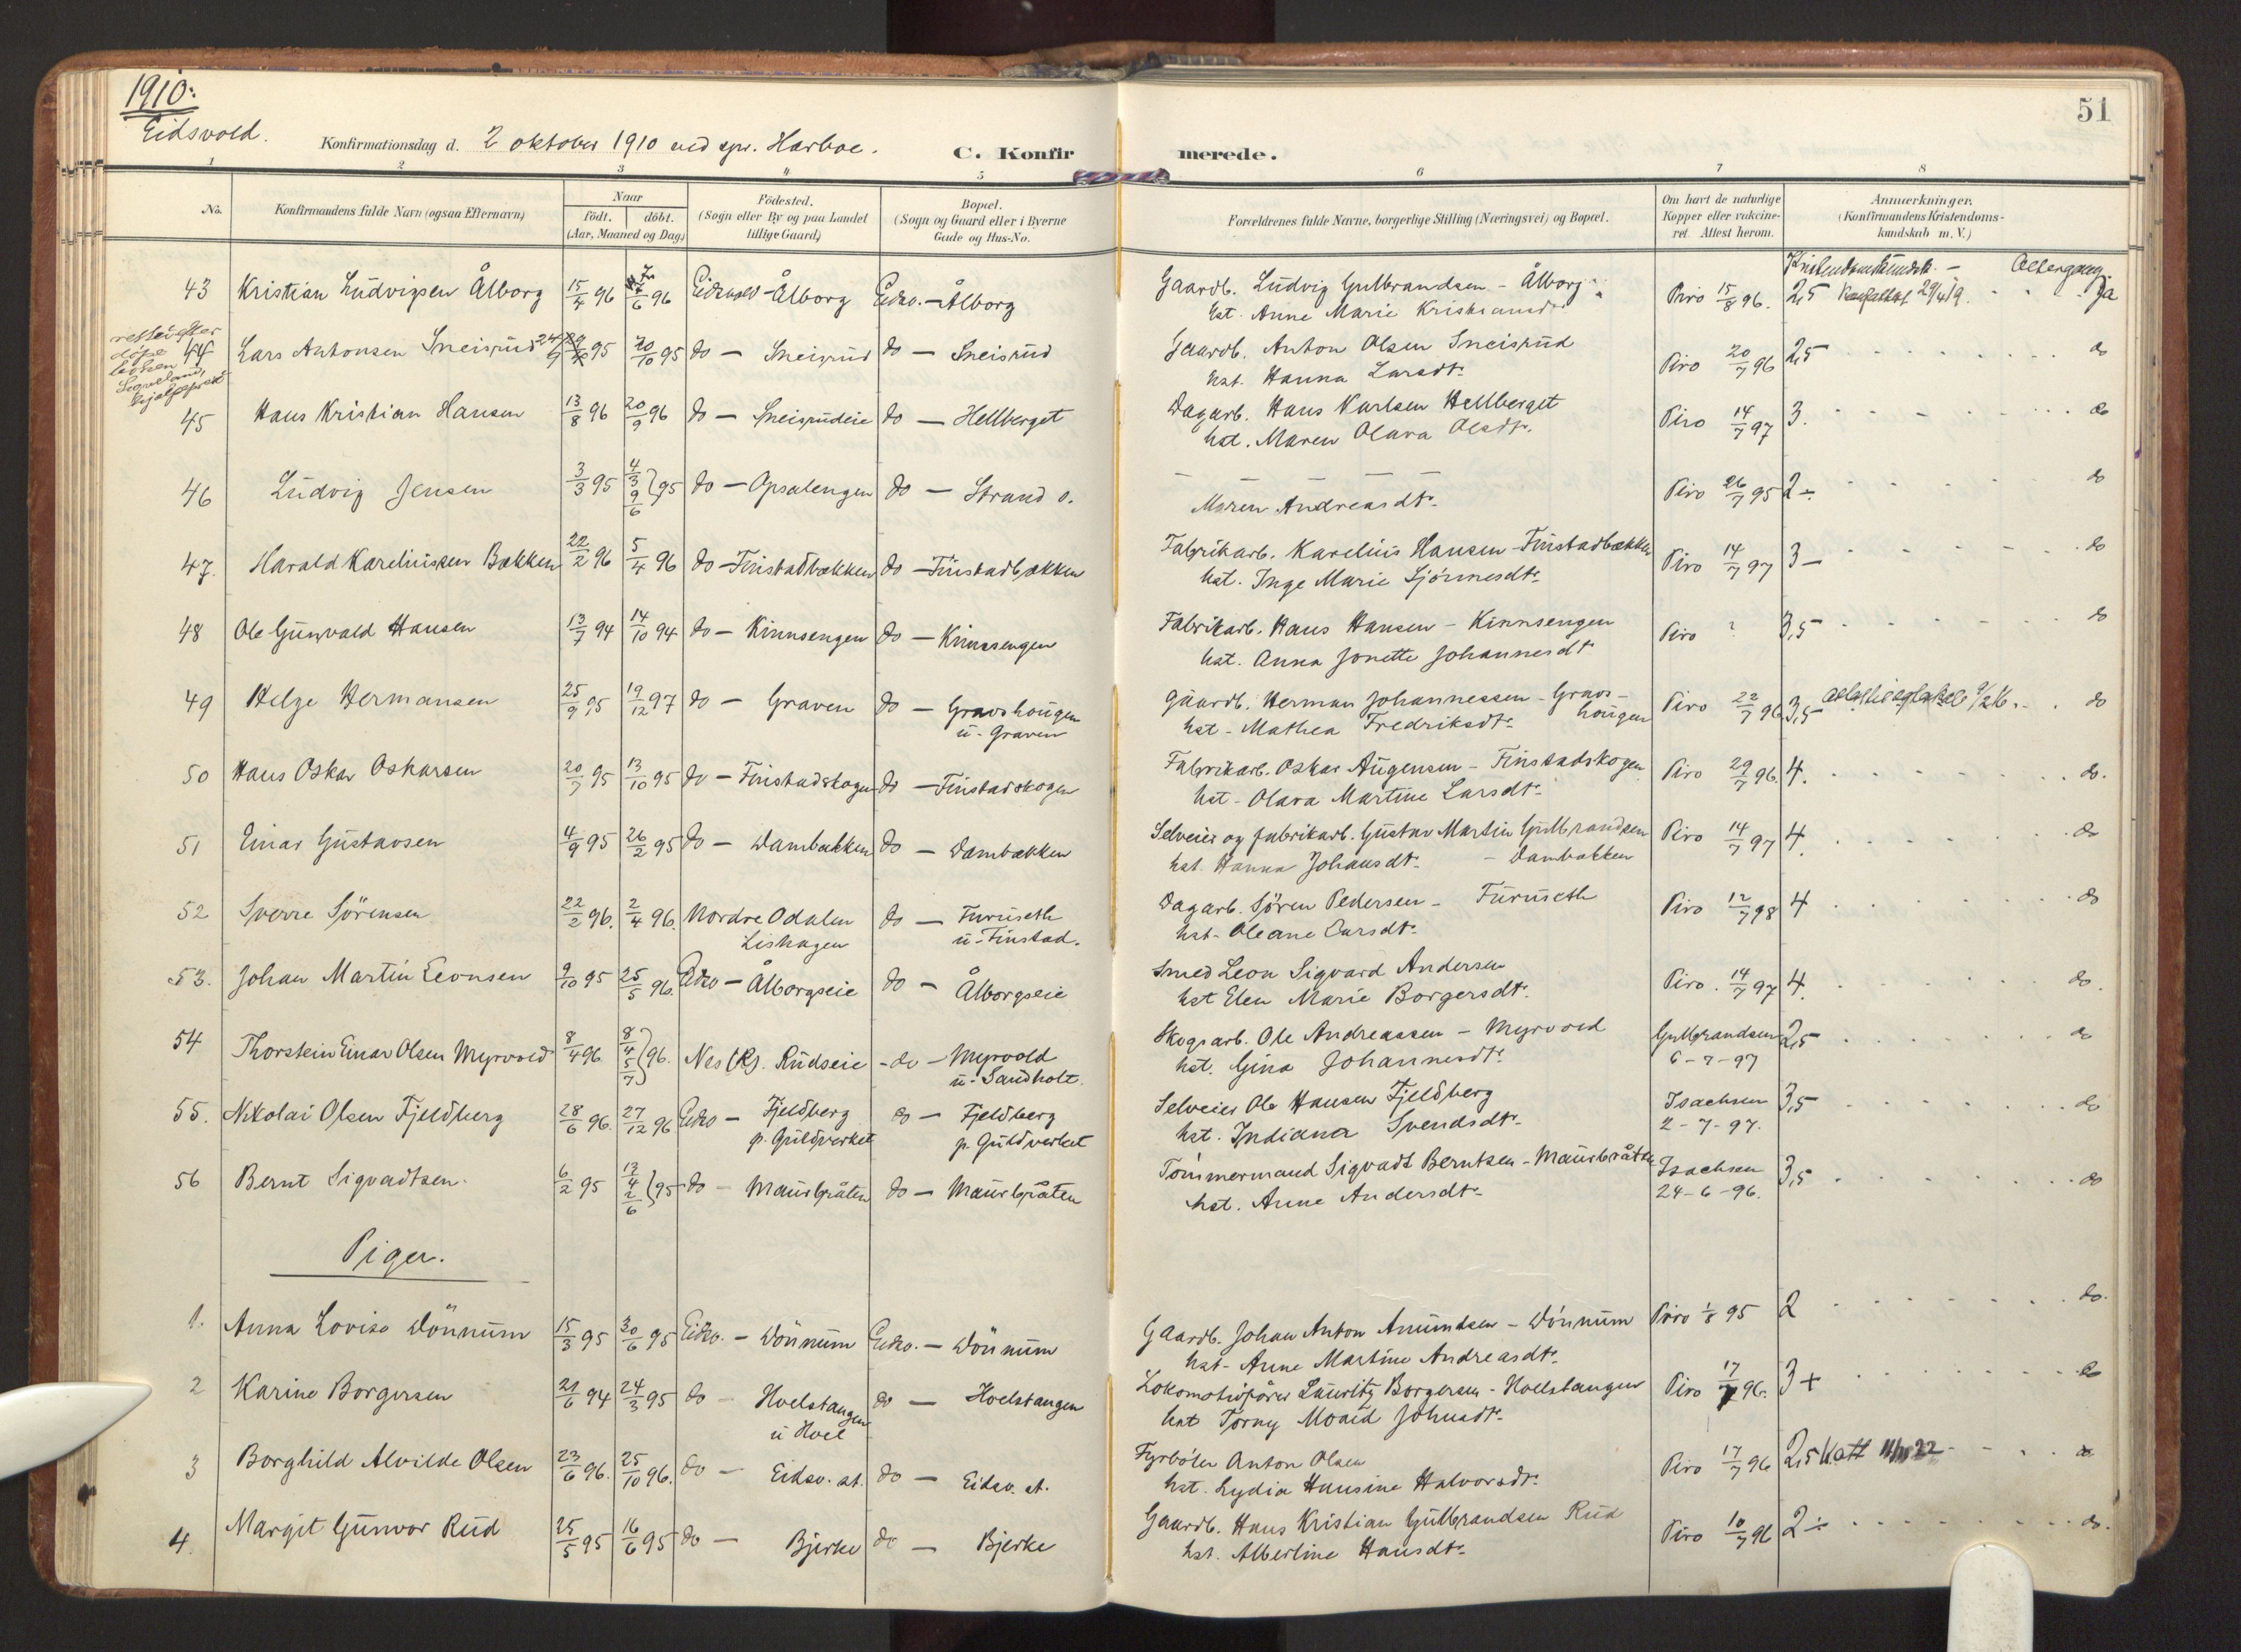 1910.
Eidsvold.
Konfirmationsdag d. 2 oktober 1910 ved spr. Harboe.
C. Konfirmerede.
51
1 2 3 4 5 6 7 8
No.
Konfirmandens fulde Navn (ogsaa Efternavn)
Naar
födt. döbt.
(Aar, Maaned og Dag)
Födested.
(Sogn eller By og paa Landet
tillige Gaard)
Bopæl.
(Sogn og Gaard eller i Byerne
Gade og Hus-No.
Forældrenes fulde Navne, borgerlige Stilling (Næringsvei) og Bopæl.
Om havt de naturlige
Kopper eller vakcine-
ret. Attest herom.
Anmærkninger.
(Konfirmandens Kristendoms-
kundskab m. V.)
Kristendomskundsk. — Altergang.
43 Kristian Ludvigsen Ålborg 15/4 96 7/6 96 Eidsvold - Ålborg Eidsv. - Ålborg Gaardb. Ludvig Gulbrandsen - Ålborg Piro 15/8 96. 2,5 29/4 19 ja
hst. Anne Marie
rettet efter
44 Lars Antonsen Sneisrud 24/9 95 20/10 95 do - Sneisrud do - Sneisrud Gaardb. Anton Olsen Sneisrud Piro 20/7 96 2,5 do
hst. Hanna Larsdtr.
45 Hans Kristian Hansen 13/8 96 20/9 96 do - Sneisrudeie do - Hellberget Dagarb. Hans Karlsen Hellberget Piro 14/7 97 3. do
hst. Maren Olava Olsdtr.
46 Ludvig Jensen 3/3 95 4/3 9/6 } 95 do - Opsalengen do - Strand o. — — — Piro 26/7 95 2 ÷ do
Maren Andreasdtr.
47. Harald Kareliussen Bækken 22/2 96 5/4 96 do - Finstadbækken do - Finstadbækken Fabrikarb. Karelius Hansen - Finstadbækken Piro 14/7 97 3 - do
hst. Inge Marie Sjönnesdtr.
48 Ole Gunvald Hansen 13/7 94 14/10 94 do - Kinnsengen do - Kinnsengen Fabrikarb. Hans Hansen - Kinnsengen Piro ? 3,5 do
hst. Anna Jonette Johannesdtr
49 Helge Hermansen 25/9 95 19/12 97 do - Graven do - Gravshougen Gaardb. Herman Johannessen - Gravs- Piro 22/7 96 3,5 do
u. Graven hst - Mathea Fredriksdtr. hougen
50 Hans Oskar Oskarsen 20/7 95 13/10 95 do - Finstadskogen do - Finstadskogen Fabrikarb. Oskar Augensen - Finstadskogen Piro 29/7 96. 4. do.
hst - Olava Martine Larsdtr.
51 Einar Gustavsen 4/9 95 26/2 95 do - Dambækken do - Dambækken Selveier og fabrikarb. Gustav Martin Gulbrandsen Piro 14/7 97 4. do
hst. Hanna Johansdtr. - Dambækken
52 Sverre Sörensen 22/2 96. 2/4 96. Nordre Odalen do - Furuseth Dagarb. Sören Pedersen - Furuseth Piro 12/7 98 4 do
Lishagen u. Finstad. hst - Oleane Larsdtr.
53. Johan Martin Leonsen 9/10 95 25/5 96. Eidsv - Ålborgseie do - Ålborgseie Smed Leon Sigvard Andersen Piro. 14/7 97 4. do.
hst Elen Marie Borgersdtr.
54 Thorstein Einar Olsen Myrvold 8/4 96. 8/4 5/7 } 96. Nes (R). Rudseie - do - Myrvold Skogsarb. Ole Andreassen - Myrvold Gulbrandsen 2,5 do
u. Sandholt. hst. Gina Johannesdtr. 6-7-97
55. Nikolai Olsen Fjeldberg 28/6 96. 27/12 96 Eidsv - Fjeldberg do - Fjeldberg Selveier Ole Hansen Fjeldberg Isachsen 3,5 do
p. Guldverket p. Guldverket hst. Indiana Svendsdtr. 2-7-97.
56 Bernt Sigvadtsen. 6/2 95 13/4 2/6 } 95 do - Maurbråten do - Maurbråten Tömmermand Sigvadt Berntsen - Maurbråten Isachsen 3,5 do
hst. Anne Andersdtr. 24-6-96.
Piger.
1. Anna Lovise Dönnum 15/3 95 30/6 95 Eidsv. - Dönnum Eidsv. - Dönnum Gaardb. Johan Anton Amundsen - Dönnum Piro 1/8 95 2 do.
hst - Anne Martine Andreasdtr.
2 Karine Borgersen 21/6 94 24/3 95 do - Hoelstangen do - Hoelstangen Lokomotivförer Lauritz Borgersen - Hoelstangen Piro 17/7 96. 3 + do
u Hoel hst Torny Moaid Johnsdtr.
3 Borghild Alvilde Olsen 23/6 96. 25/10 96. do - Eidsv. st. do - Eidsv. st. Fyrböter Anton Olsen Piro 17/7 96 2,5 do
hst. Lydia Hansine Halvorsdtr.
4. Margit Gunvor Rud 25/5 95 16/6 95 do - Bjerke do - Bjerke Gaardb. Hans Kristian Gulbrandsen Rud Piro 10/7 96 2 ÷ do.
hst. Albertine Hansdtr.